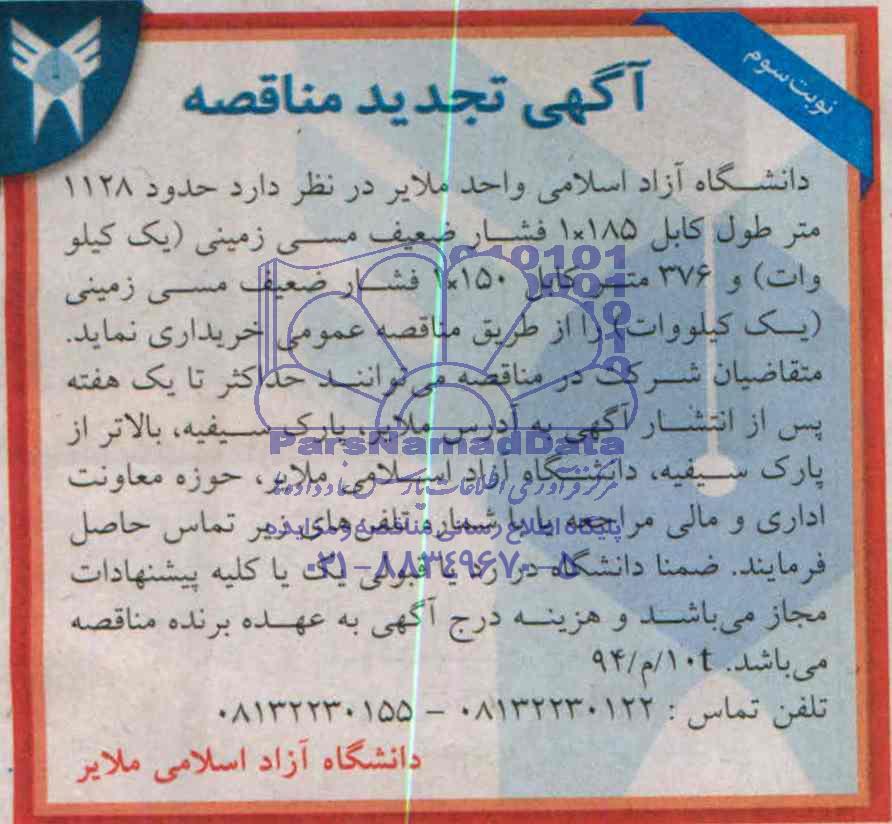 نوبت سوم
آگهی تجدید مناقصه
دانشگاه آزاد اسلامی واحد ملایر در نظر دارد حدود ۱۱۲۸
متر طول کابل ۱۸۵×۱ فشار ضعیف مسی زمینی (یک کیلو
وات) و ۳۷۶ متر کابل ۱۵۰×۱ فشار ضعیف مسی زمینی
(یک کیلووات) را از طریق مناقصه عمومی خریداری نماید.
متقاضیان شرکت در مناقصه می‌توانند حداکثر تا یک هفته
پس از انتشار آگهی به آدرس ملایر، پارک سیفیه، بالاتر از
پارک سیفیه، دانشگاه آزاد اسلامی ملایر، حوزه معاونت
اداری و مالی مراجعه یا با شماره تلفن‌های زیر تماس حاصل
فرمایند. ضمنا دانشگاه در رد یا قبولی یک یا کلیه پیشنهادات
مجاز می‌باشد و هزینه درج آگهی به عهده برنده مناقصه
می‌باشد. ۱۰t/م/۹۴
تلفن تماس : ۰۸۱۳۲۲۳۰۱۲۲ – ۰۸۱۳۲۲۳۰۱۵۵
دانشگاه آزاد اسلامی ملایر
ParsNamadData
مرکز فرآوری اطلاعات پارس نماد داده‌ها
پایگاه اطلاع رسانی مناقصه و مزایده
۰۲۱-۸۸۳۴۹۶۷۰-۵